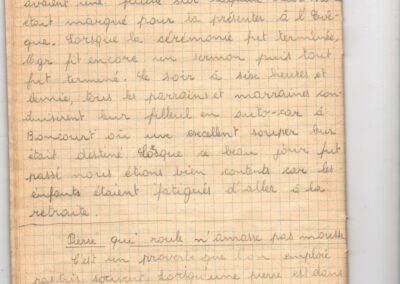 avaient une feuille sur laquelle
était marqué pour la présenter à l'Evê-
que. Lorsque la cérémonie fut terminée,
Mgr fit encore un sermon puis tout
fut terminé. Le soir à sise heures et
demie, tous les parrains et marraines con-
duisirent leur filleul en auto-car à
Boncourt où un excellent souper leur
était destiné. Losque ce beau jour fut
passé nous étions bien contents car les
enfants étaient fatigués d'aller à la
retraite.
Pierre qui roule n'amasse pas mousse
C'est un proverbe que l'on emploie
pas très souvent. Lorsqu'une pierre est dans